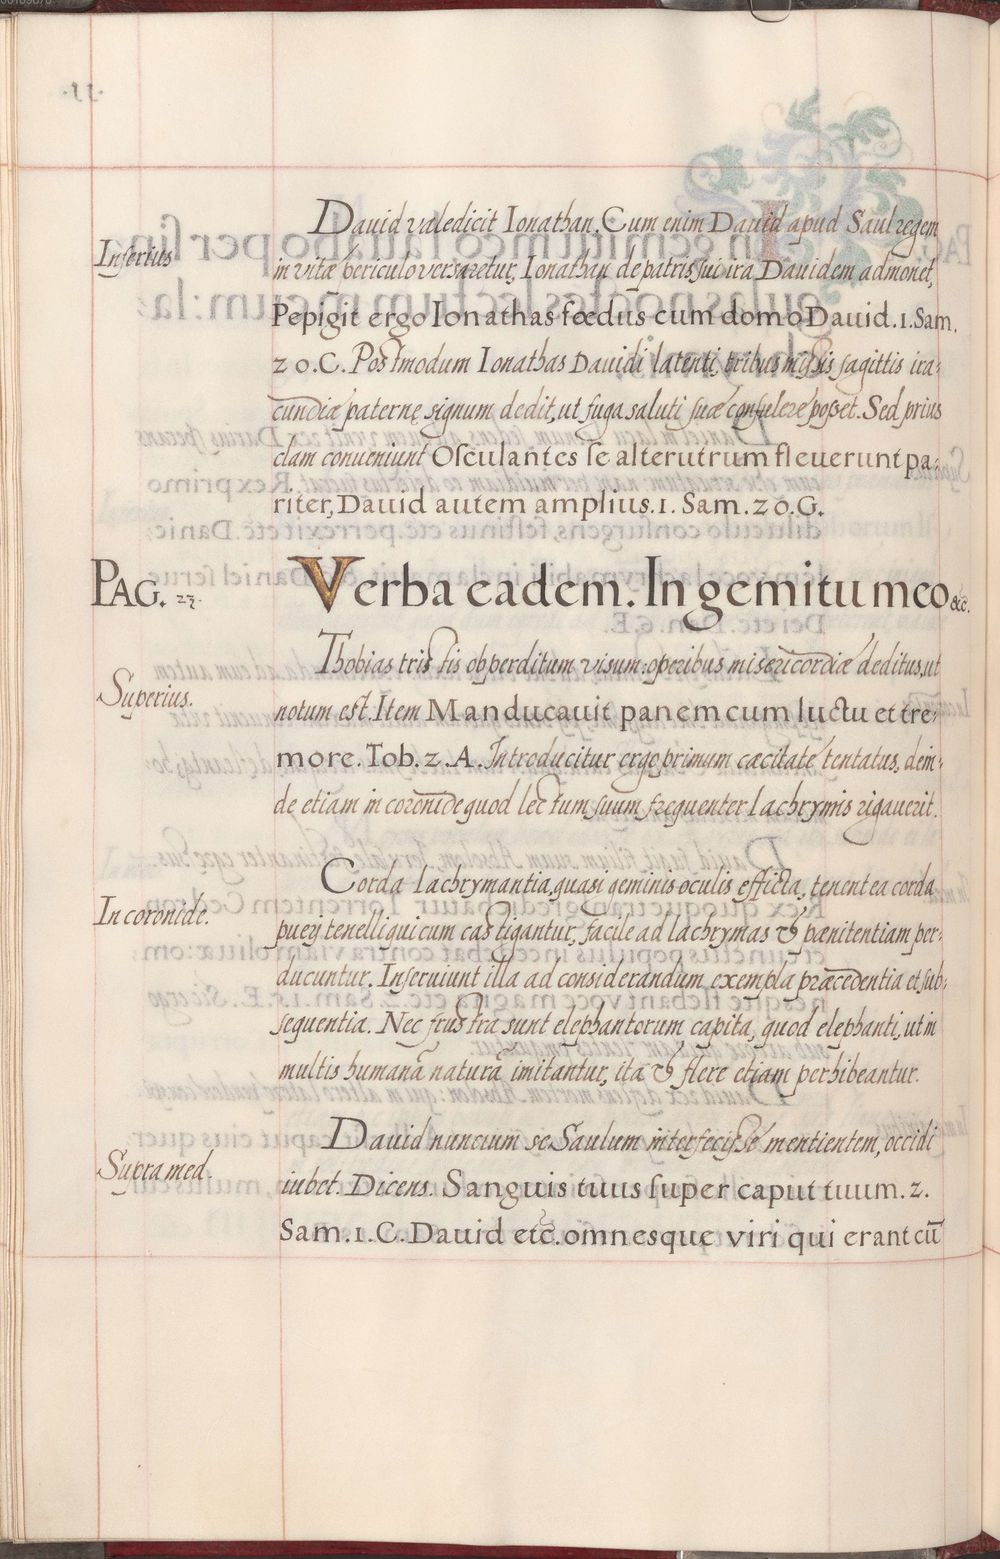 Inferius
Dauid valedicit Ionathan. Cum enim Dauid apud Saul regem
in vitæ periculo versaretur, Ionathan de patris sui ira Dauidem admonet,
Pepigit ergo Ionathas fœdus cum domo Dauid. 1. Sam.
20. C. Postmodum Ionathas Dauidi latenti, tribus missis sagittis ira:
cundiæ paternę signum dedit, ut fuga saluti suæ consulere posset. Sed prius
clam conueniunt Osculantes se alterutrum fleuerunt pa:
riter, Dauid autem amplius. 1. Sam. 20. G.
PAG. 23.
Verba eadem. In gemitu meo &c.
Superius.
Thobias tristis ob perditum visum: operibus misericordiæ deditus, ut
notum est. Item Manducauit panem cum luctu et tre:
more. Tob. 2. A. Introducitur ergo primum cæcitate tentatus, dein:
de etiam in coronide quod lectum suum frequenter lachrymis rigauerit.
In coronide.
Corda lachrymantia, quasi geminis oculis efficta, tenent ea corda
puerj tenelli qui cum castigantur, facile ad lachrymas & pœnitentiam per:
ducuntur. Inseruiunt illa ad considerandum exempla præcedentia et sub:
sequentia. Nec frustra sunt elephantorum capita, quod elephanti, ut in
multis humanā naturā imitantur, ita & flere etiam perhibeantur.
Supra med.
Dauid nuncium se Saulum interfecisse mentientem, occidi
iubet. Dicens. Sanguis tuus super caput tuum. 2.
Sam. 1. C. Dauid etc. omnesque viri qui erant cū